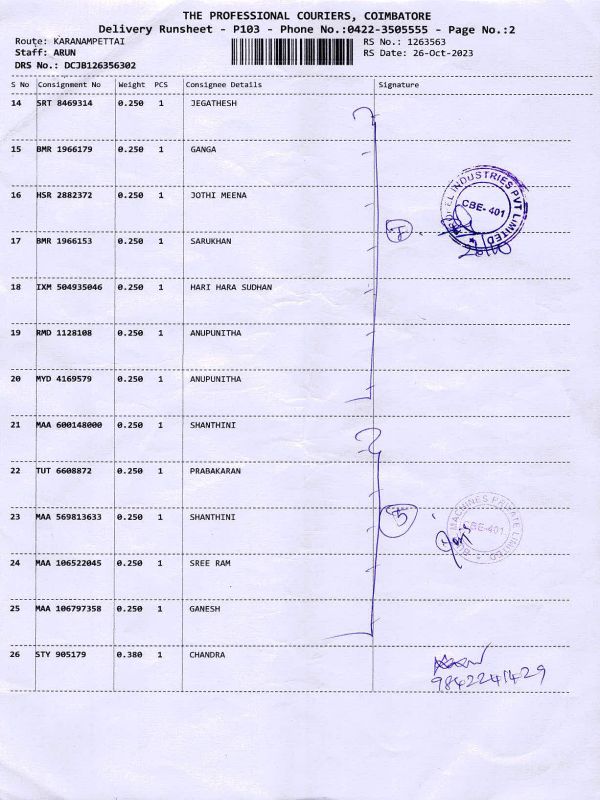 THE PROFESSIONAL COURIERS, COIMBATORE
Delivery Runsheet - P103 - Phone No.:0422-3505555 - Page No.:2
Route: KARANAMPETTAI RS No.: 1263563
Staff: ARUN RS Date: 26-Oct-2023
DRS No.: DCJB126356302
S No Consignment No Weight PCS Consignee Details Signature
14 SRT 8469314 0.250 1 JEGATHESH
15 BMR 1966179 0.250 1 GANGA
16 HSR 2882372 0.250 1 JOTHI MEENA
INDUSTRIES PVT LIMITED
CBE-401
17 BMR 1966153 0.250 1 SARUKHAN
18 IXM 504935046 0.250 1 HARI HARA SUDHAN
19 RMD 1128108 0.250 1 ANUPUNITHA
20 MYD 4169579 0.250 1 ANUPUNITHA
21 MAA 600148000 0.250 1 SHANTHINI
22 TUT 6608872 0.250 1 PRABAKARAN
23 MAA 569813633 0.250 1 SHANTHINI
5
MACHINES PRIVATE LIMITED
CBE-401
24 MAA 106522045 0.250 1 SREE RAM
25 MAA 106797358 0.250 1 GANESH
26 STY 905179 0.380 1 CHANDRA
9842241429